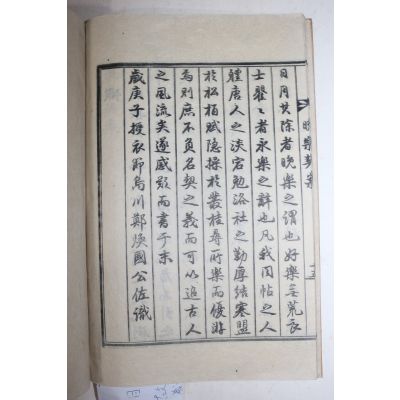 日月其除者晩樂之謂也好樂無荒良
士瞿〻者永樂之辞也凡我同帖之人
軆唐人之淡宕勉洛社之勤厚結寒盟
於松栢賦隱操於叢桂尋所樂而優游
焉則庶不負名契之義而可以追古人
之風流矣遂感題而書于末
歲庚子授衣節烏川鄭煥國公佐識
晩樂契案